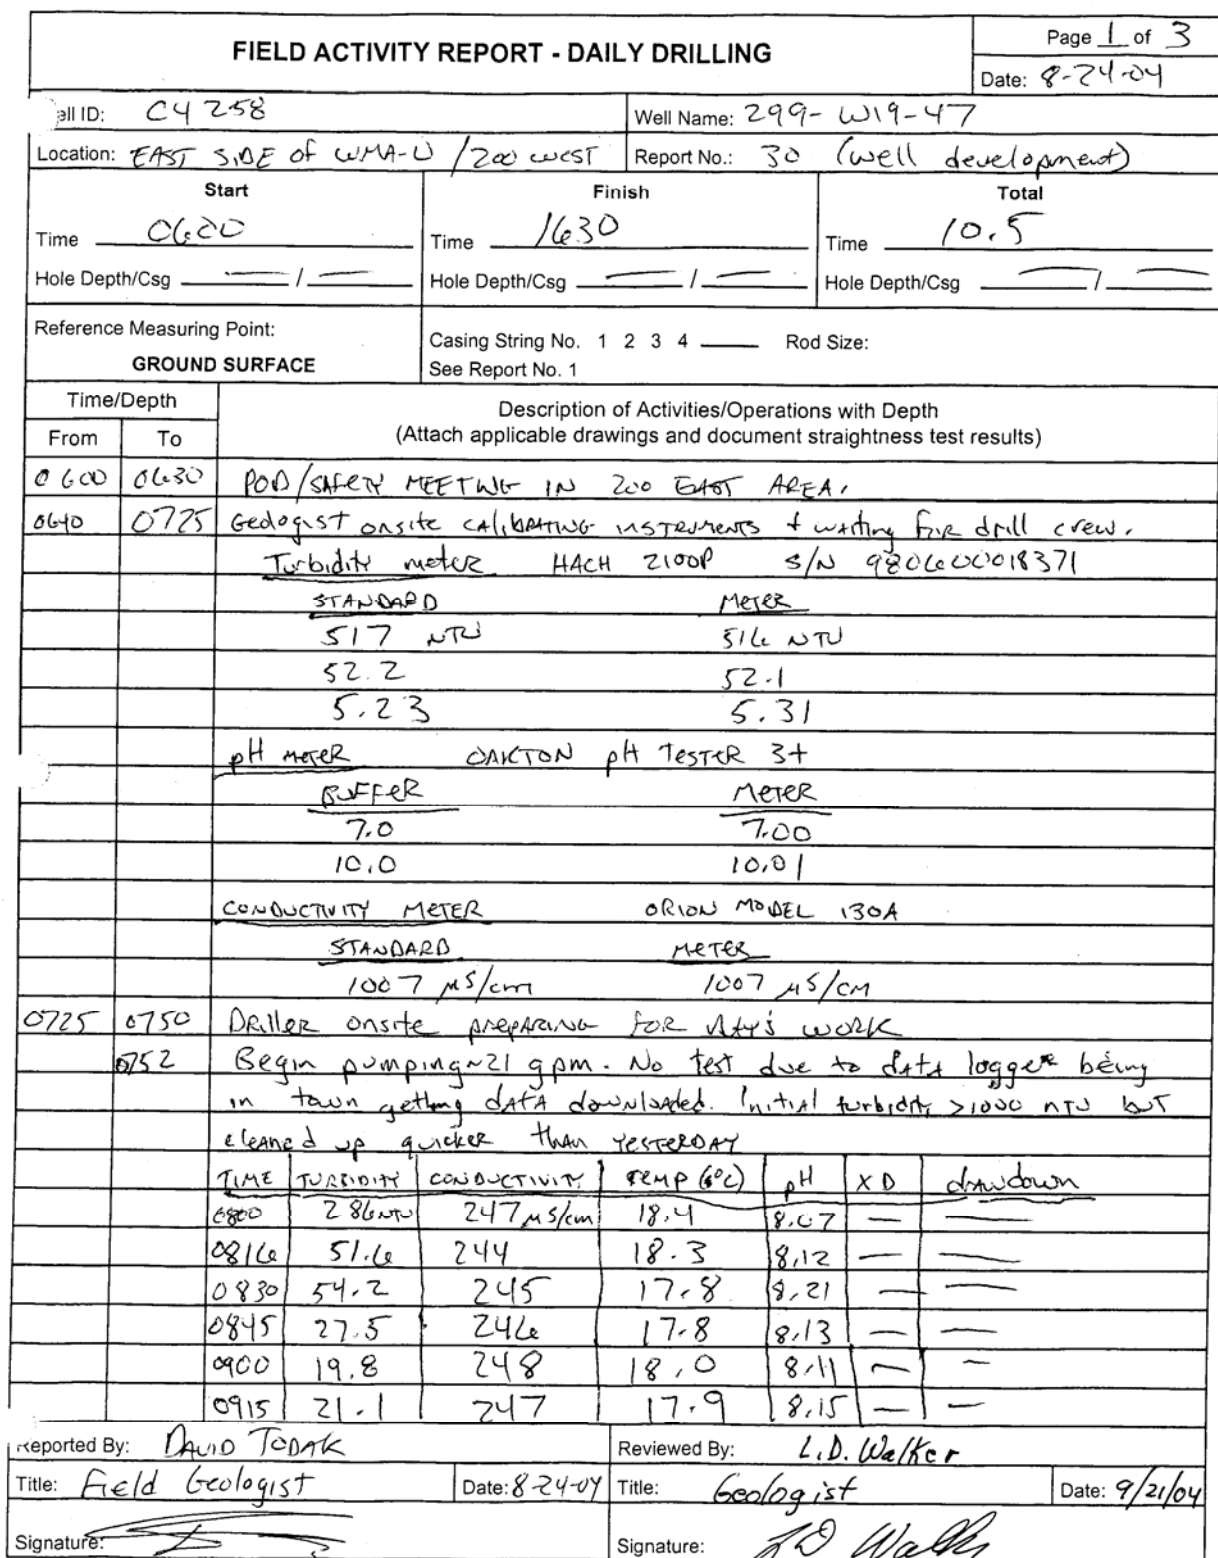 FIELD ACTIVITY REPORT - DAILY DRILLING
Page 1 of 3
Date: 8-24-04
ell ID: C4258
Well Name: 299-W19-47
Location: EAST SIDE of WMA-U / 200 WEST
Report No.: 30 (well development)
Start
Finish
Total
Time 0600
Time 1630
Time 10.5
Hole Depth/Csg — / —
Hole Depth/Csg — / —
Hole Depth/Csg — / —
Reference Measuring Point:
GROUND SURFACE
Casing String No. 1 2 3 4 ____ Rod Size:
See Report No. 1
Time/Depth
From To
Description of Activities/Operations with Depth
(Attach applicable drawings and document straightness test results)
0600 0630 POD/SAFETY MEETING IN 200 EAST AREA.
0640 0725 Geologist onsite CALIBRATING INSTRUMENTS + waiting FOR drill crew.
Turbidity meter HACH 2100P S/N 980600018371
STANDARD METER
517 NTU 516 NTU
52.2 52.1
5.23 5.31
pH METER OAKTON pH TESTER 3+
BUFFER METER
7.0 7.00
10.0 10.01
CONDUCTIVITY METER ORION MODEL 130A
STANDARD METER
1007 µS/cm 1007 µS/cm
0725 0750 DRILLER onsite PREPARING FOR DAY'S WORK
0752 Begin pumping ~21 gpm. No test due to dATA logger being
in town getting dATA downloaded. Initial turbidity >1000 NTU but
cleaned up quicker than YESTERDAY
TIME TURBIDITY CONDUCTIVITY TEMP (°C) pH XD drawdown
0800 286 NTU 247 µS/cm 18.4 8.07 — —
0816 51.6 244 18.3 8.12 — —
0830 54.2 245 17.8 8.21 — —
0845 27.5 246 17.8 8.13 — —
0900 19.8 248 18.0 8.11 — —
0915 21.1 247 17.9 8.15 — —
Reported By: DAVID TODAK
Reviewed By: L.D. Walker
Title: Field Geologist Date: 8-24-04
Title: Geologist Date: 9/21/04
Signature:
Signature: LD Walker